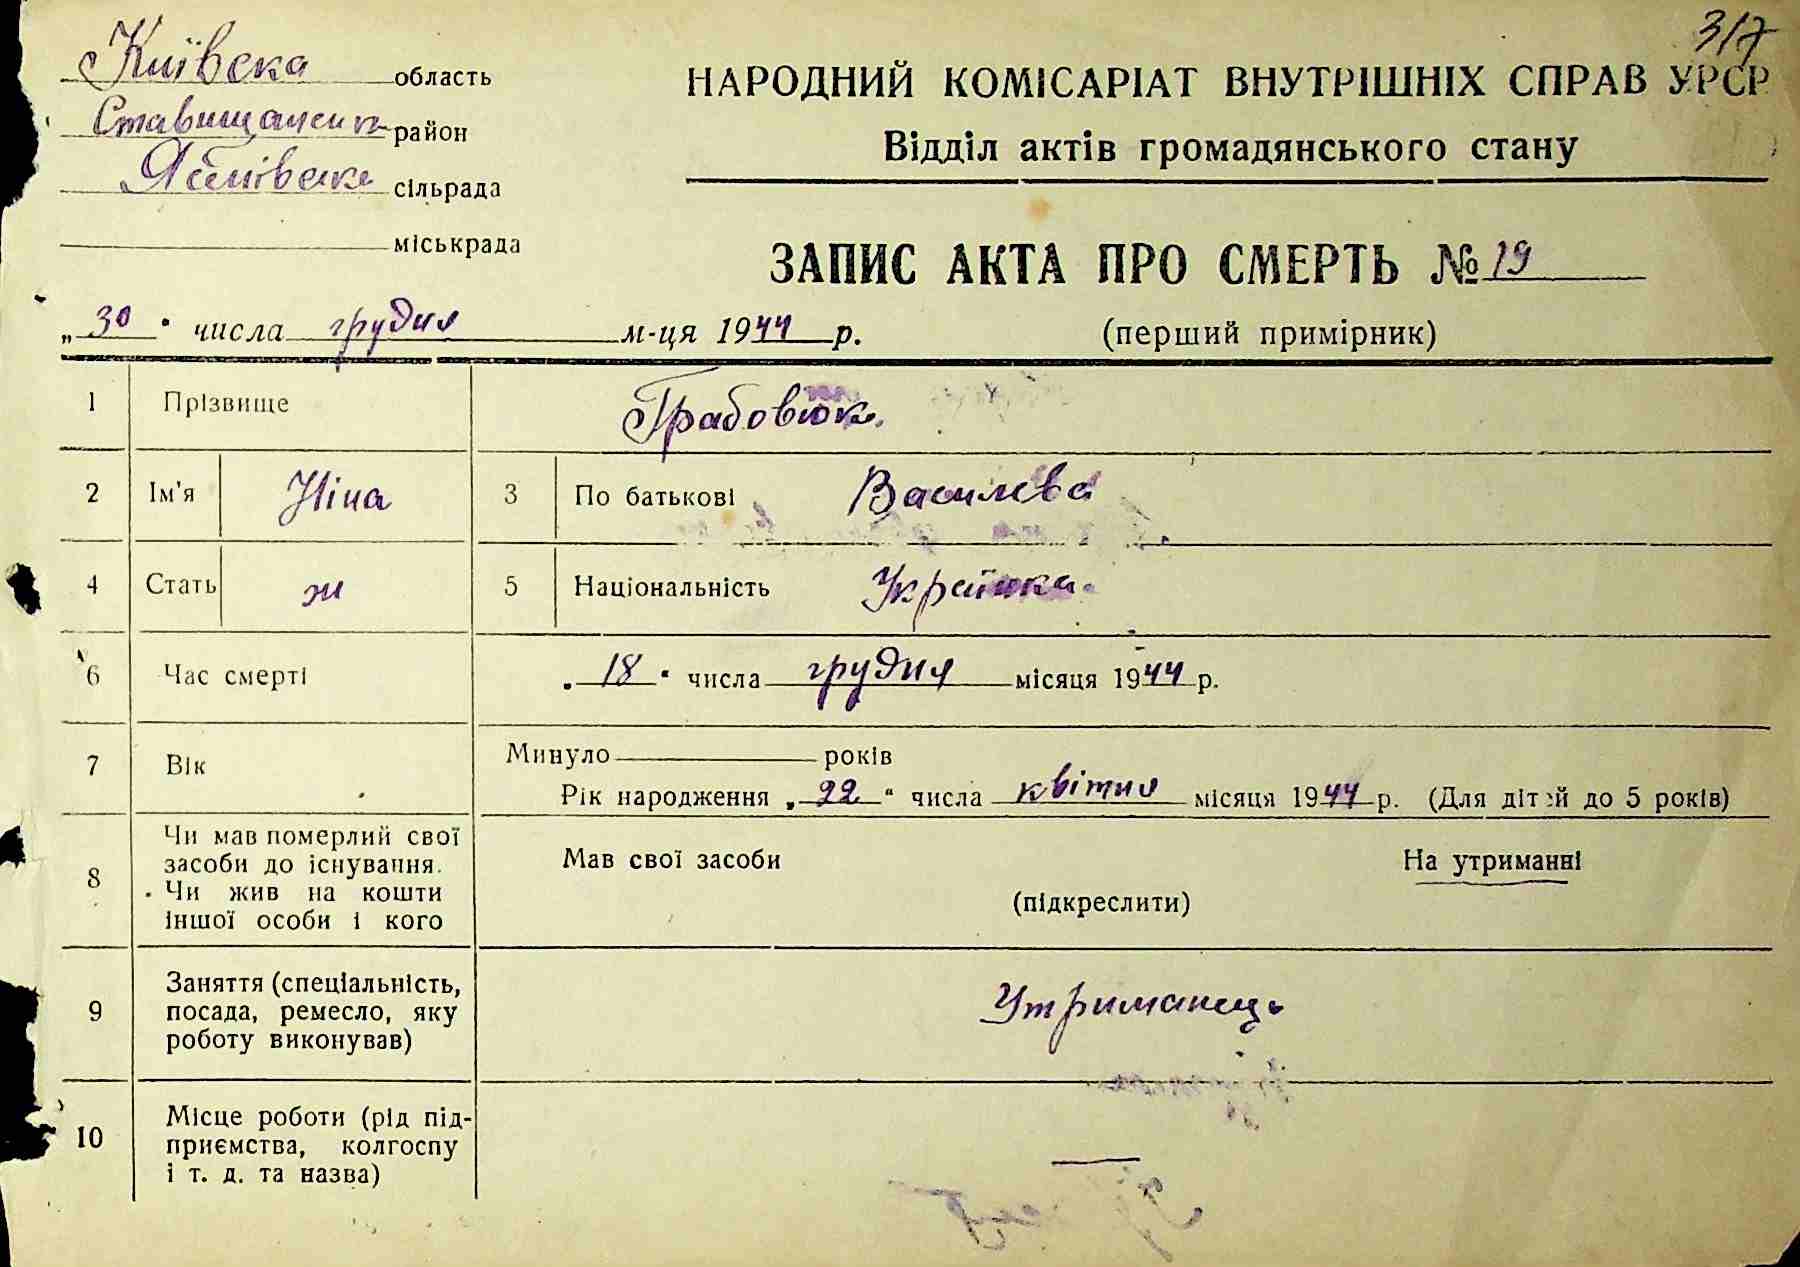 317
Київска область
НАРОДНИЙ КОМІСАРІАТ ВНУТРІШНІХ СПРАВ УРСР
Ставищанський район
Відділ актів громадянського стану
Яблівська сільрада
міськрада
ЗАПИС АКТА ПРО СМЕРТЬ № 19
„30“ числа грудня м-ця 1944 р. (перший примірник)
1 Прізвище Грабовюк.
2 Ім'я Ніна 3 По батькові Василева
4 Стать ж 5 Національність Украйика.
6 Час смерті „18“ числа грудня місяця 1944 р.
7 Вік Минуло років
Рік народження „22“ числа квітня місяця 1944 р. (Для дітей до 5 років)
8 Чи мав померлий свої засоби до існування. Мав свої засоби На утриманні
Чи жив на кошти іншої особи і кого (підкреслити)
9 Заняття (спеціальність, посада, ремесло, яку роботу виконував) Утриманець
10 Місце роботи (рід під-
приємства, колгоспу
і т. д. та назва) —